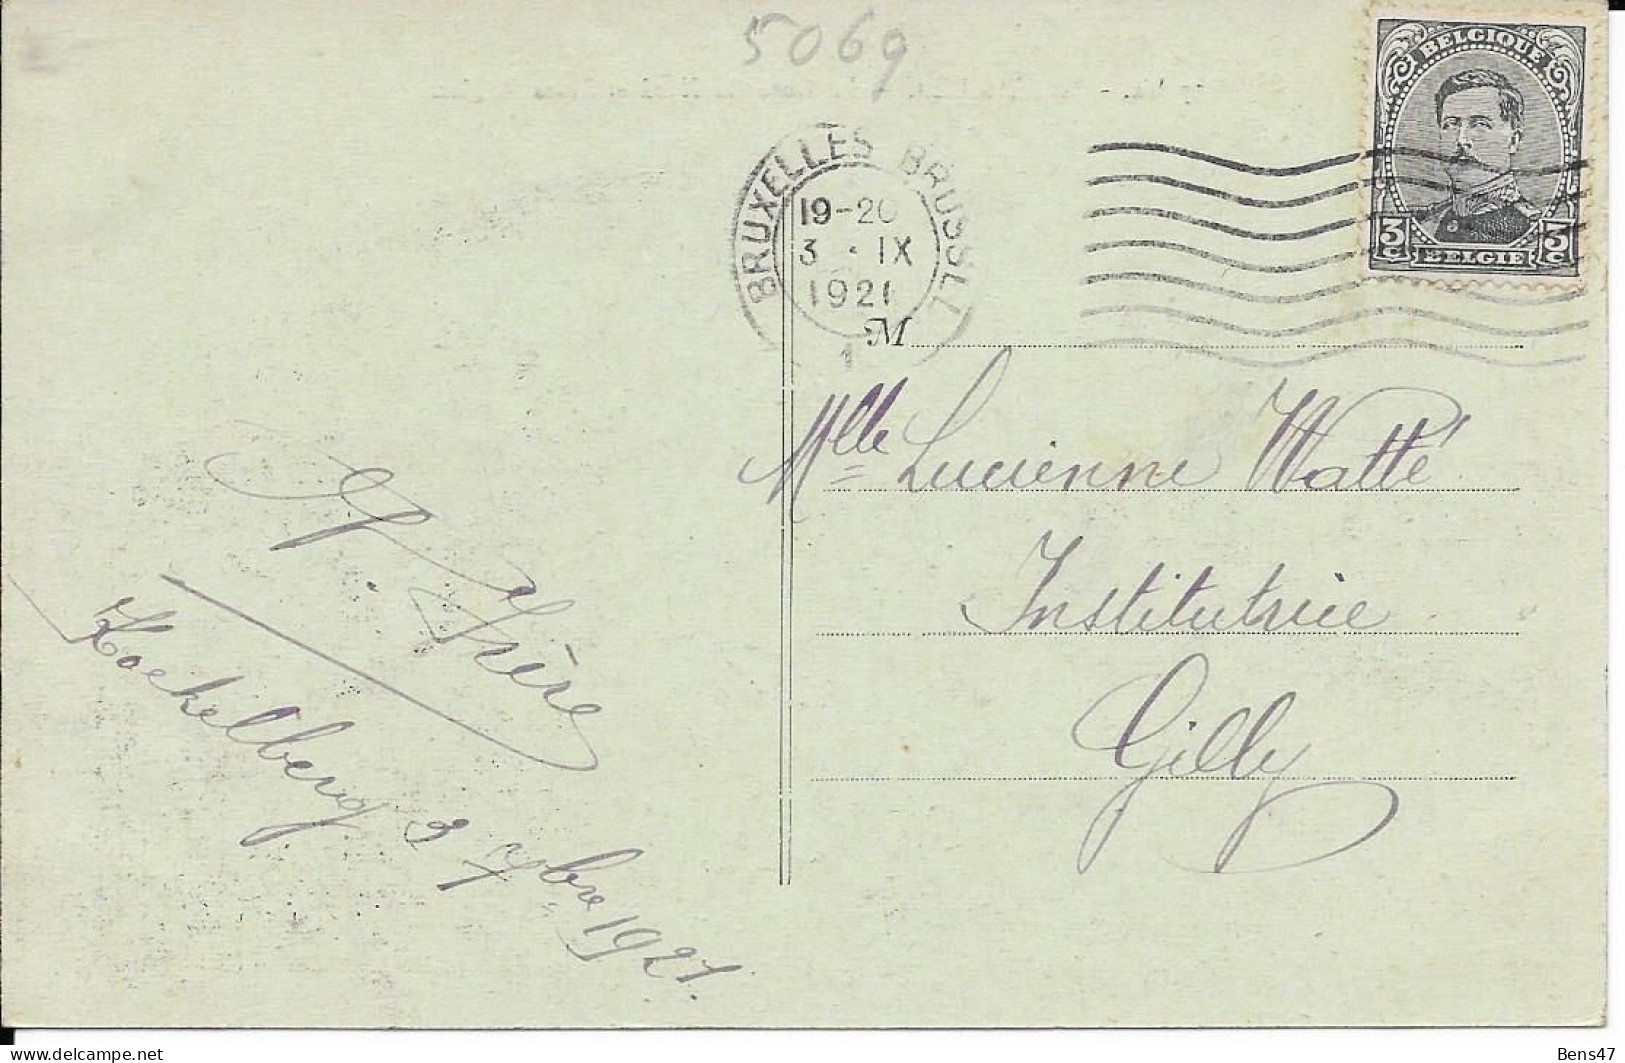 5069
BELGIQUE
3 c 3 c
BELGIE
BRUXELLES BRUSSEL
19-20
3 · IX
1921
1
M
Mlle Lucienne Watté
Institutrice
Gilly
Frère
Koekelberg 3 7bre 1921.
Bens47